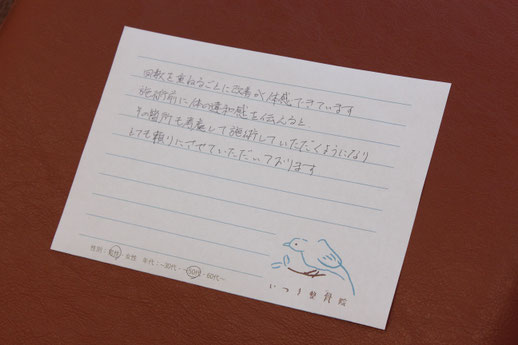 回数を重ねるごとに改善が体感できています
施術前に体の違和感を伝えると
その箇所も考慮して施術していただくようになり
とても頼りにさせていただいております
性別：男性・女性 年代：～30代・～50代・60代～
いつき整骨院